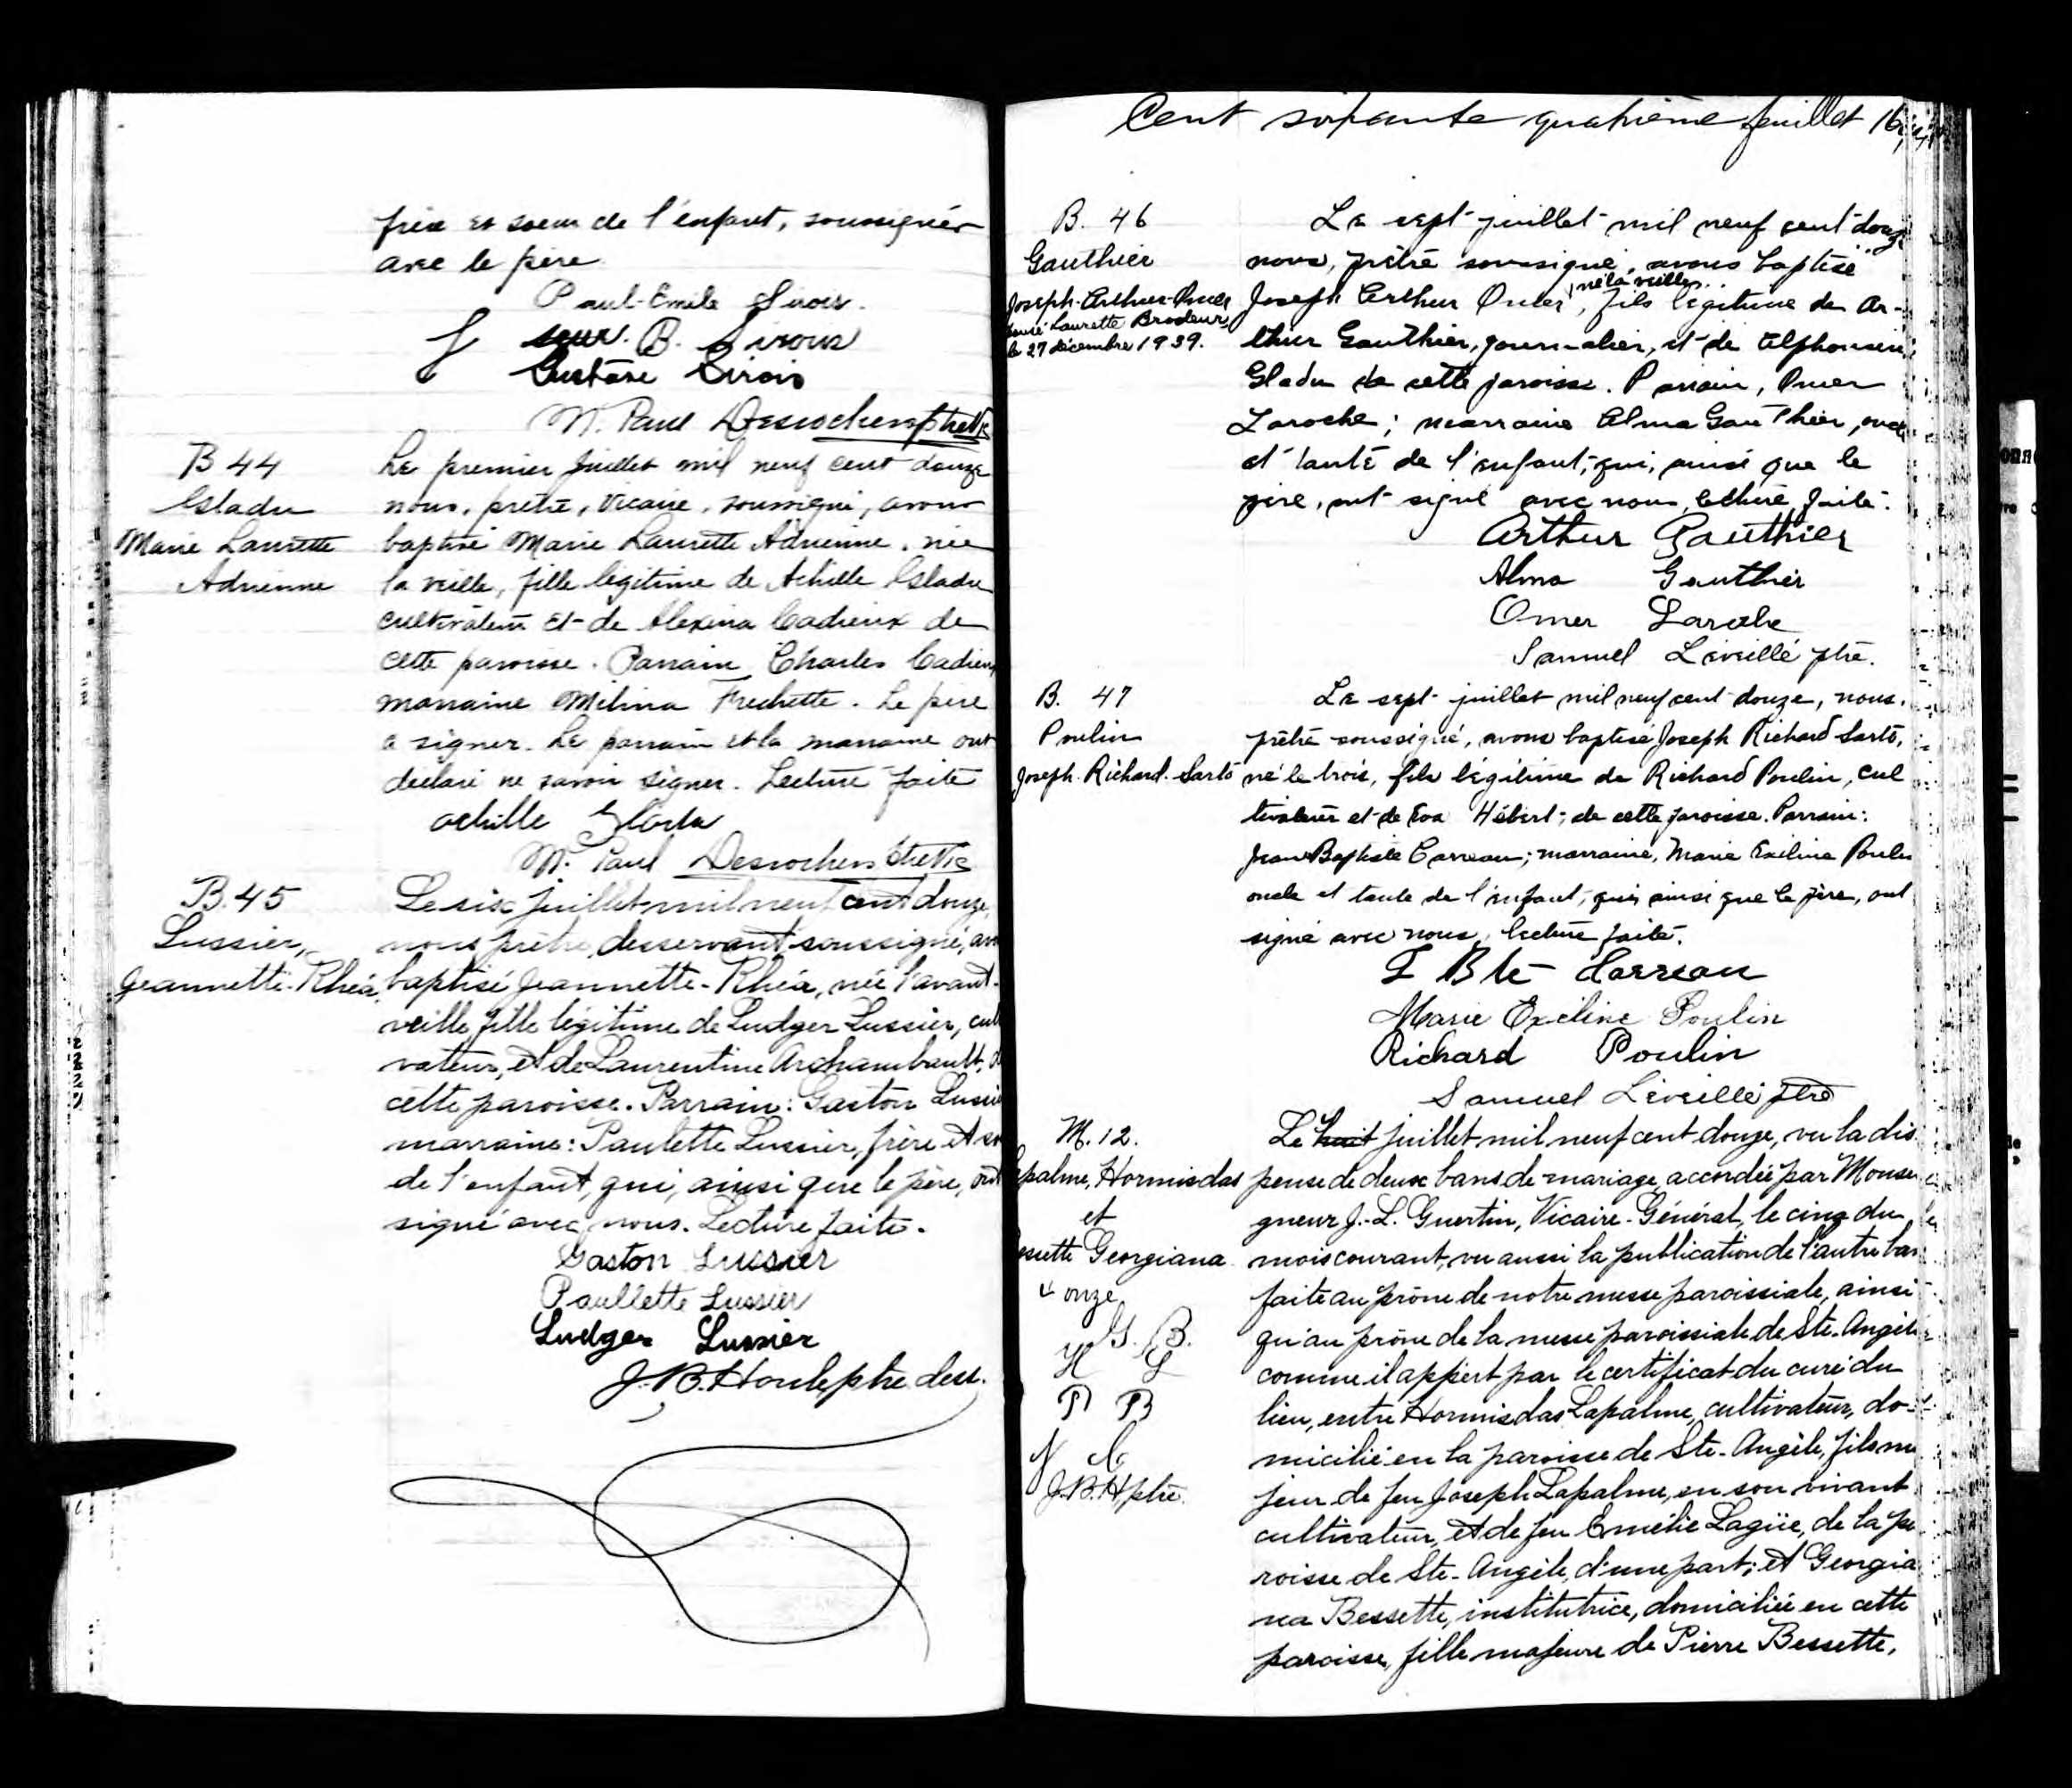 frère et soeur de l'enfant, soussignés
avec le père
Paul-Emile Sirois.
B. Sirois
Gustave Sirois
M. Paul Desrochers ptre Vic
B 44
Gladu
Marie Laurette
Adrienne
Le premier Juillet mil neuf cent douze
nous, prêtre, vicaire, soussigné, avons
baptisé Marie Laurette Adrienne, née
la veille, fille légitime de Achille Gladu
cultivateur et de Alexina Cadieux de
cette paroisse. Parrain Charles Cadieux
marraine Mélina Frechette. Le père
a signer. Le parrain et la marraine ont
déclaré ne savoir signer. Lecture faite
achille Gladu
M. Paul Desrochers ptre Vic
B. 45
Lussier,
Jeannette-Rhéa
Le six juillet mil neuf cent douze,
nous prêtre desservant soussigné, avons
baptisé Jeannette-Rhéa, née l'avant-
veille fille légitime de Ludger Lussier, culti
vateur, et de Laurentine Archambault, de
cette paroisse. Parrain: Gaston Lussier
marraine: Paulette Lussier, frère et so
de l'enfant, qui, ainsi que le père, ont
signé avec nous. Lecture faite.
Gaston Lussier
Paullette Lussier
Ludger Lussier
J. B. Houle ptre dess.
Cent soixante quatrième feuillet 164
B. 46
Gauthier
Joseph-Arthur-Omer
Laurette Brodeur
le 27 décembre 1939.
Le sept juillet mil neuf cent douze
nous, prêtre soussigné, avons baptisé
né la veille
Joseph Arthur Omer, fils légitime de Ar-
thur Gauthier, journalier, et de Alphonsine
Gladu de cette paroisse. Parrain, Omer
Laroche; marraine Alma Gauthier, oncle
et tante de l'enfant, qui, ainsi que le
père, ont signé avec nous, lecture faite.
Arthur Gauthier
Alma Gauthier
Omer Laroche
Samuel Léveillé ptre.
B. 47
Poulin
Joseph-Richard-Sarto
Le sept juillet mil neuf cent douze, nous,
prêtre soussigné, avons baptisé Joseph Richard Sarto,
né le trois, fils légitime de Richard Poulin, cul
tivateur et de Eva Hébert, de cette paroisse. Parrain:
Jean-Baptiste Carreau; marraine, Marie Exiline Poulin
oncle et tante de l'enfant, qui, ainsi que le père, ont
signé avec nous, lecture faite.
J Bte Carreau
Marie Exiline Poulin
Richard Poulin
Samuel Léveillé ptre
M. 12.
palme, Hormisdas
et
ssette Georgiana
+ onze
G. B.
H L
P B
J. B. H ptre.
Le huit juillet mil neuf cent douze, vu la dis
pense de deux bans de mariage accordée par Monsei
gneur J.-L. Guertin, Vicaire-Général, le cinq du
mois courant, vu aussi la publication de l'autre ban
faite au prône de notre messe paroissiale, ainsi
qu'au prône de la messe paroissiale de Ste-Angèle
comme il appert par le certificat du curé du
lieu, entre Hormisdas Lapalme, cultivateur, do-
micilié en la paroisse de Ste-Angèle, fils ma
jeur de feu Joseph Lapalme, en son vivant
cultivateur, et de feu Emélie Lagüe, de la pa
roisse de Ste-Angèle, d'une part; et Georgia
na Bessette, institutrice, domiciliée en cette
paroisse, fille majeure de Pierre Bessette,